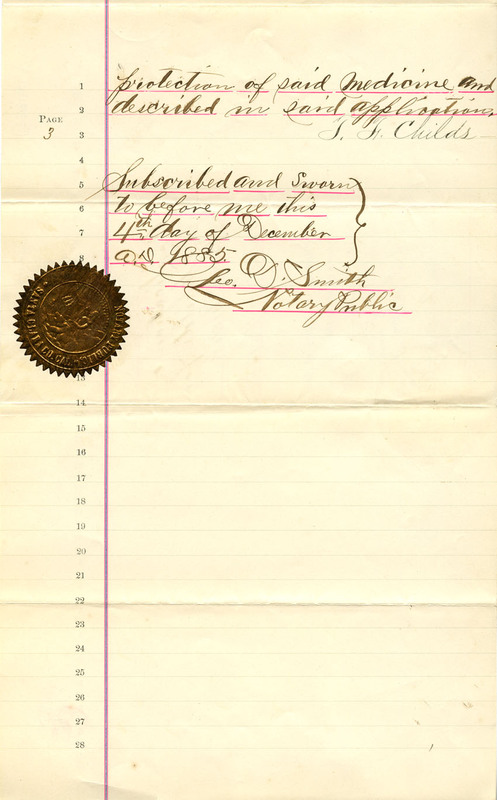 PAGE
3
1 protection of said medicine and
2 described in said application.
3 T. F. Childs
4
5 Subscribed and Sworn
6 to before me this
7 4th day of December
8 A.D. 1885
Geo. D. Smith
Notary Public
13
14
15
16
17
18
19
20
21
22
23
24
25
26
27
28